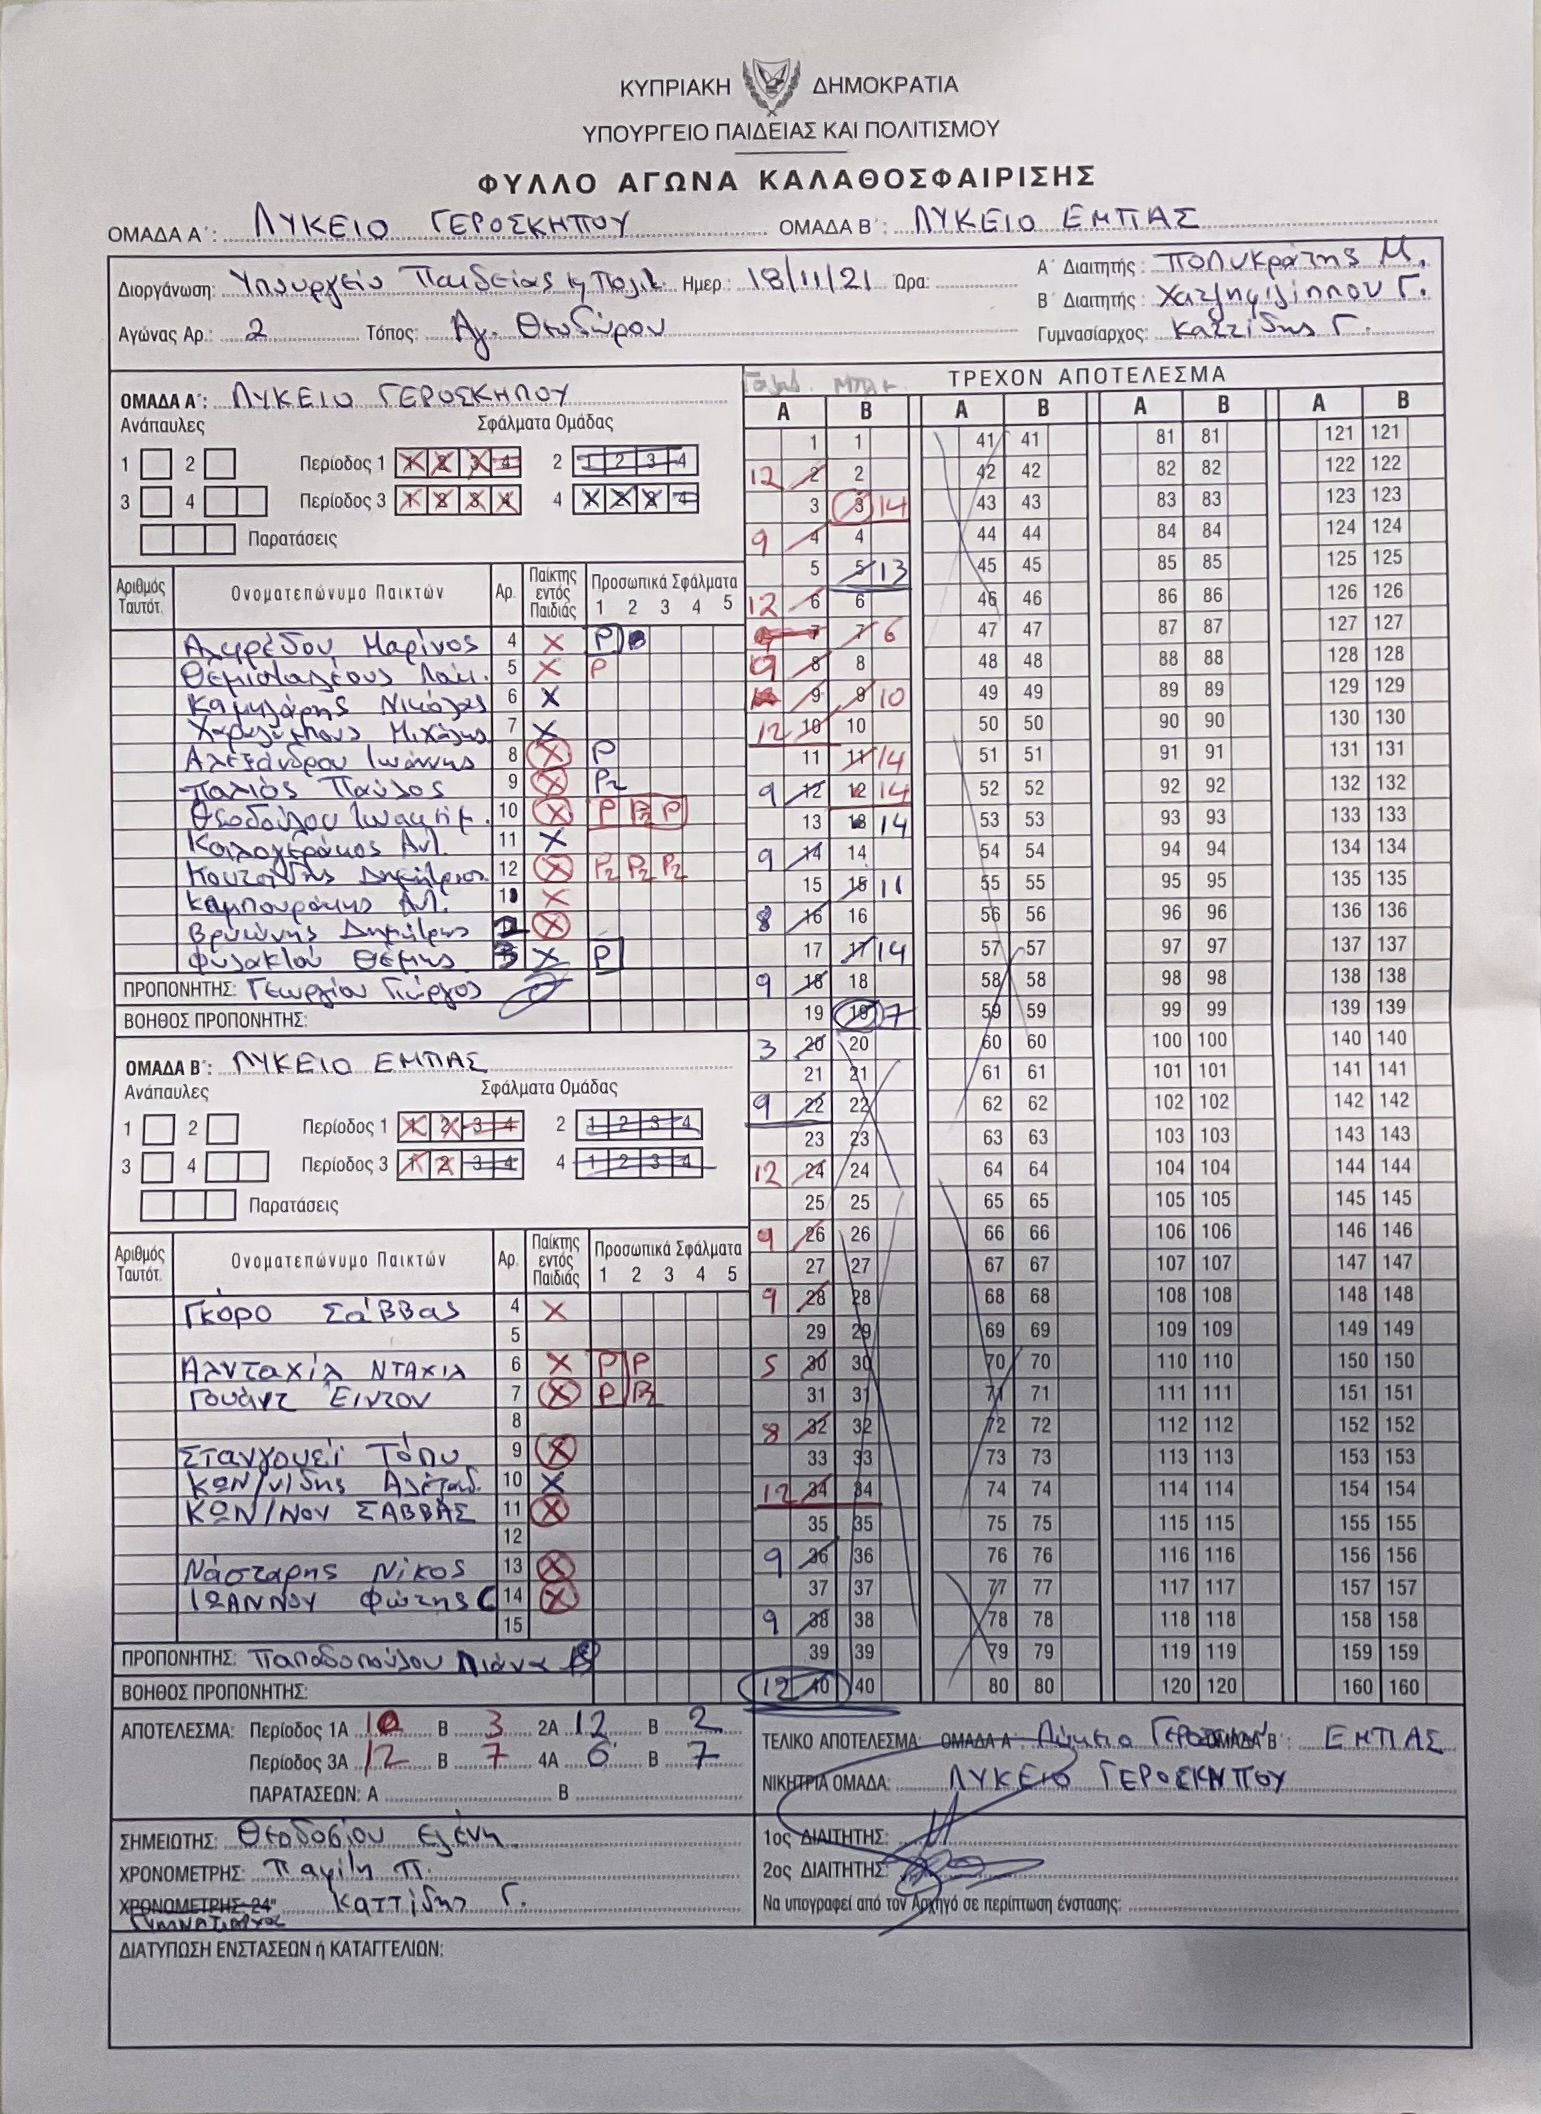 ΚΥΠΡΙΑΚΗ ΔΗΜΟΚΡΑΤΙΑ
ΥΠΟΥΡΓΕΙΟ ΠΑΙΔΕΙΑΣ ΚΑΙ ΠΟΛΙΤΙΣΜΟΥ
ΦΥΛΛΟ ΑΓΩΝΑ ΚΑΛΑΘΟΣΦΑΙΡΙΣΗΣ
ΟΜΑΔΑ Α΄: ΛΥΚΕΙΟ ΓΕΡΟΣΚΗΠΟΥ ΟΜΑΔΑ Β΄: ΛΥΚΕΙΟ ΕΜΠΑΣ
Διοργάνωση: Υπουργείο Παιδείας κ Πολιτ. Ημερ.: 18/11/21 Ώρα:
Α΄ Διαιτητής: Πολυκράτης Μ.
Β΄ Διαιτητής: Χατζηφιλίππου Γ.
Αγώνας Αρ.: 2 Τόπος: Αγ. Θεοδώρου
Γυμνασίαρχος: Καττίδης Γ.
ΟΜΑΔΑ Α΄: ΛΥΚΕΙΟ ΓΕΡΟΣΚΗΠΟΥ
Ανάπαυλες Σφάλματα Ομάδας
1 2 Περίοδος 1 1 2 3 4 2 1 2 3 4
3 4 Περίοδος 3 1 2 3 4 4 1 2 3 4
Παρατάσεις
Αριθμός Ταυτότ. Ονοματεπώνυμο Παικτών Αρ. Παίκτης εντός Παιδιάς Προσωπικά Σφάλματα
1 2 3 4 5
Αλφρέδου Μαρίνος 4 X P
5 X P
Καμηλάρης Νικόλας 6 X
Χαραλάμπους Μιχάλης 7 X
Αλεξάνδρου Ιωάννης 8 X P
Παλιός Παύλος 9 X P2
Θεοδούλου Ιωακείμ. 10 X P P2 P
Καλογεράκος Αντ. 11 X
Κουτσίδης Δημήτρης 12 X P2 P2 P2
Καμπουράκης Αντ. X
Βρυώνης Δημήτρης X
Φυλακτού Θέμης X P
ΠΡΟΠΟΝΗΤΗΣ: Γεωργίου Γιώργος
ΒΟΗΘΟΣ ΠΡΟΠΟΝΗΤΗΣ:
ΟΜΑΔΑ Β΄: ΛΥΚΕΙΟ ΕΜΠΑΣ
Ανάπαυλες Σφάλματα Ομάδας
1 2 Περίοδος 1 1 2 3 4 2 1 2 3 4
3 4 Περίοδος 3 1 2 3 4 4 1 2 3 4
Παρατάσεις
Αριθμός Ταυτότ. Ονοματεπώνυμο Παικτών Αρ. Παίκτης εντός Παιδιάς Προσωπικά Σφάλματα
1 2 3 4 5
Γκόρο Σάββας 4 X
5
Αλνταχίλ ΝΤΑΧΙΛ 6 X P P
Γουάντ Έιντον 7 X P P2
8
Στανγουεϊ Τόπυ 9 X
ΚΩΝ/νίδης Αλέξανδ. 10 X
ΚΩΝ/ΝΟΥ ΣΑΒΒΑΣ 11 X
12
Νάσταρης Νίκος 13 X
ΙΩΑΝΝΟΥ Φώτης C 14 X
15
ΠΡΟΠΟΝΗΤΗΣ: Παπαδοπούλου Λιάνα
ΒΟΗΘΟΣ ΠΡΟΠΟΝΗΤΗΣ:
ΤΡΕΧΟΝ ΑΠΟΤΕΛΕΣΜΑ
Α Β Α Β Α Β Α Β
1 1 41 41 81 81 121 121
12 2 2 42 42 82 82 122 122
3 3 14 43 43 83 83 123 123
9 4 4 44 44 84 84 124 124
5 5 13 45 45 85 85 125 125
12 6 6 46 46 86 86 126 126
7 7 6 47 47 87 87 127 127
9 8 8 48 48 88 88 128 128
9 9 10 49 49 89 89 129 129
12 10 10 50 50 90 90 130 130
11 11 14 51 51 91 91 131 131
9 12 12 14 52 52 92 92 132 132
13 13 14 53 53 93 93 133 133
9 14 14 54 54 94 94 134 134
15 15 11 55 55 95 95 135 135
8 16 16 56 56 96 96 136 136
17 17 14 57 57 97 97 137 137
9 18 18 58 58 98 98 138 138
19 19 7 59 59 99 99 139 139
3 20 20 60 60 100 100 140 140
21 21 61 61 101 101 141 141
9 22 22 62 62 102 102 142 142
23 23 63 63 103 103 143 143
12 24 24 64 64 104 104 144 144
25 25 65 65 105 105 145 145
9 26 26 66 66 106 106 146 146
27 27 67 67 107 107 147 147
9 28 28 68 68 108 108 148 148
29 29 69 69 109 109 149 149
5 30 30 70 70 110 110 150 150
31 31 71 71 111 111 151 151
8 32 32 72 72 112 112 152 152
33 33 73 73 113 113 153 153
12 34 34 74 74 114 114 154 154
35 35 75 75 115 115 155 155
9 36 36 76 76 116 116 156 156
37 37 77 77 117 117 157 157
9 38 38 78 78 118 118 158 158
39 39 79 79 119 119 159 159
12 40 40 80 80 120 120 160 160
ΑΠΟΤΕΛΕΣΜΑ: Περίοδος 1Α 10 Β 3 2Α 12 Β 2
Περίοδος 3Α 12 Β 7 4Α 6 Β 7
ΠΑΡΑΤΑΣΕΩΝ: Α Β
ΤΕΛΙΚΟ ΑΠΟΤΕΛΕΣΜΑ: ΟΜΑΔΑ Α΄: Λύκειο ΟΜΑΔΑ Β΄: ΕΜΠΑΣ
ΝΙΚΗΤΡΙΑ ΟΜΑΔΑ: ΛΥΚΕΙΟ ΓΕΡΟΣΚΗΠΟΥ
ΣΗΜΕΙΩΤΗΣ: Θεοδοσίου Ελένη
ΧΡΟΝΟΜΕΤΡΗΣ:
ΧΡΟΝΟΜΕΤΡΗΣ 24" Καττίδης Γ.
ΓΥΜΝΑΣΙΑΡΧΟΣ
1ος ΔΙΑΙΤΗΤΗΣ:
2ος ΔΙΑΙΤΗΤΗΣ:
Να υπογραφεί από τον Αρχηγό σε περίπτωση ένστασης:
ΔΙΑΤΥΠΩΣΗ ΕΝΣΤΑΣΕΩΝ ή ΚΑΤΑΓΓΕΛΙΩΝ: